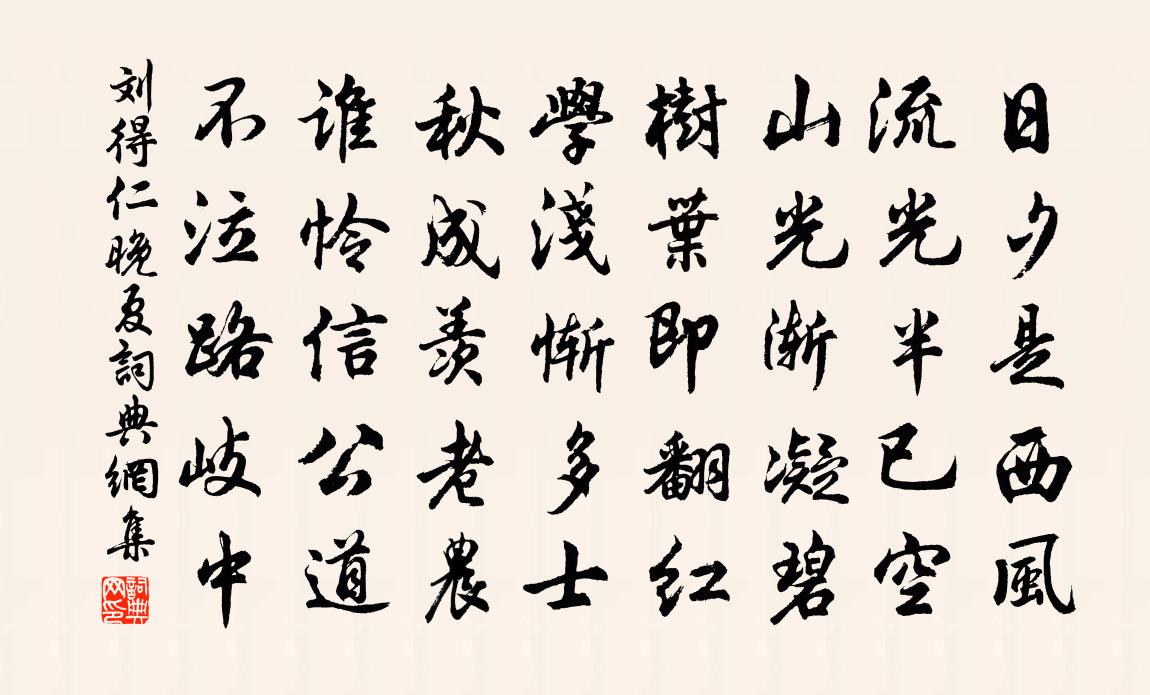 日夕是西風
流光半已空
山光漸凝碧
樹葉即翻紅
學淺慚多士
秋成羨老農
誰怜信公道
不泣路岐中
刘得仁晚夏詞典網集
詞典網印